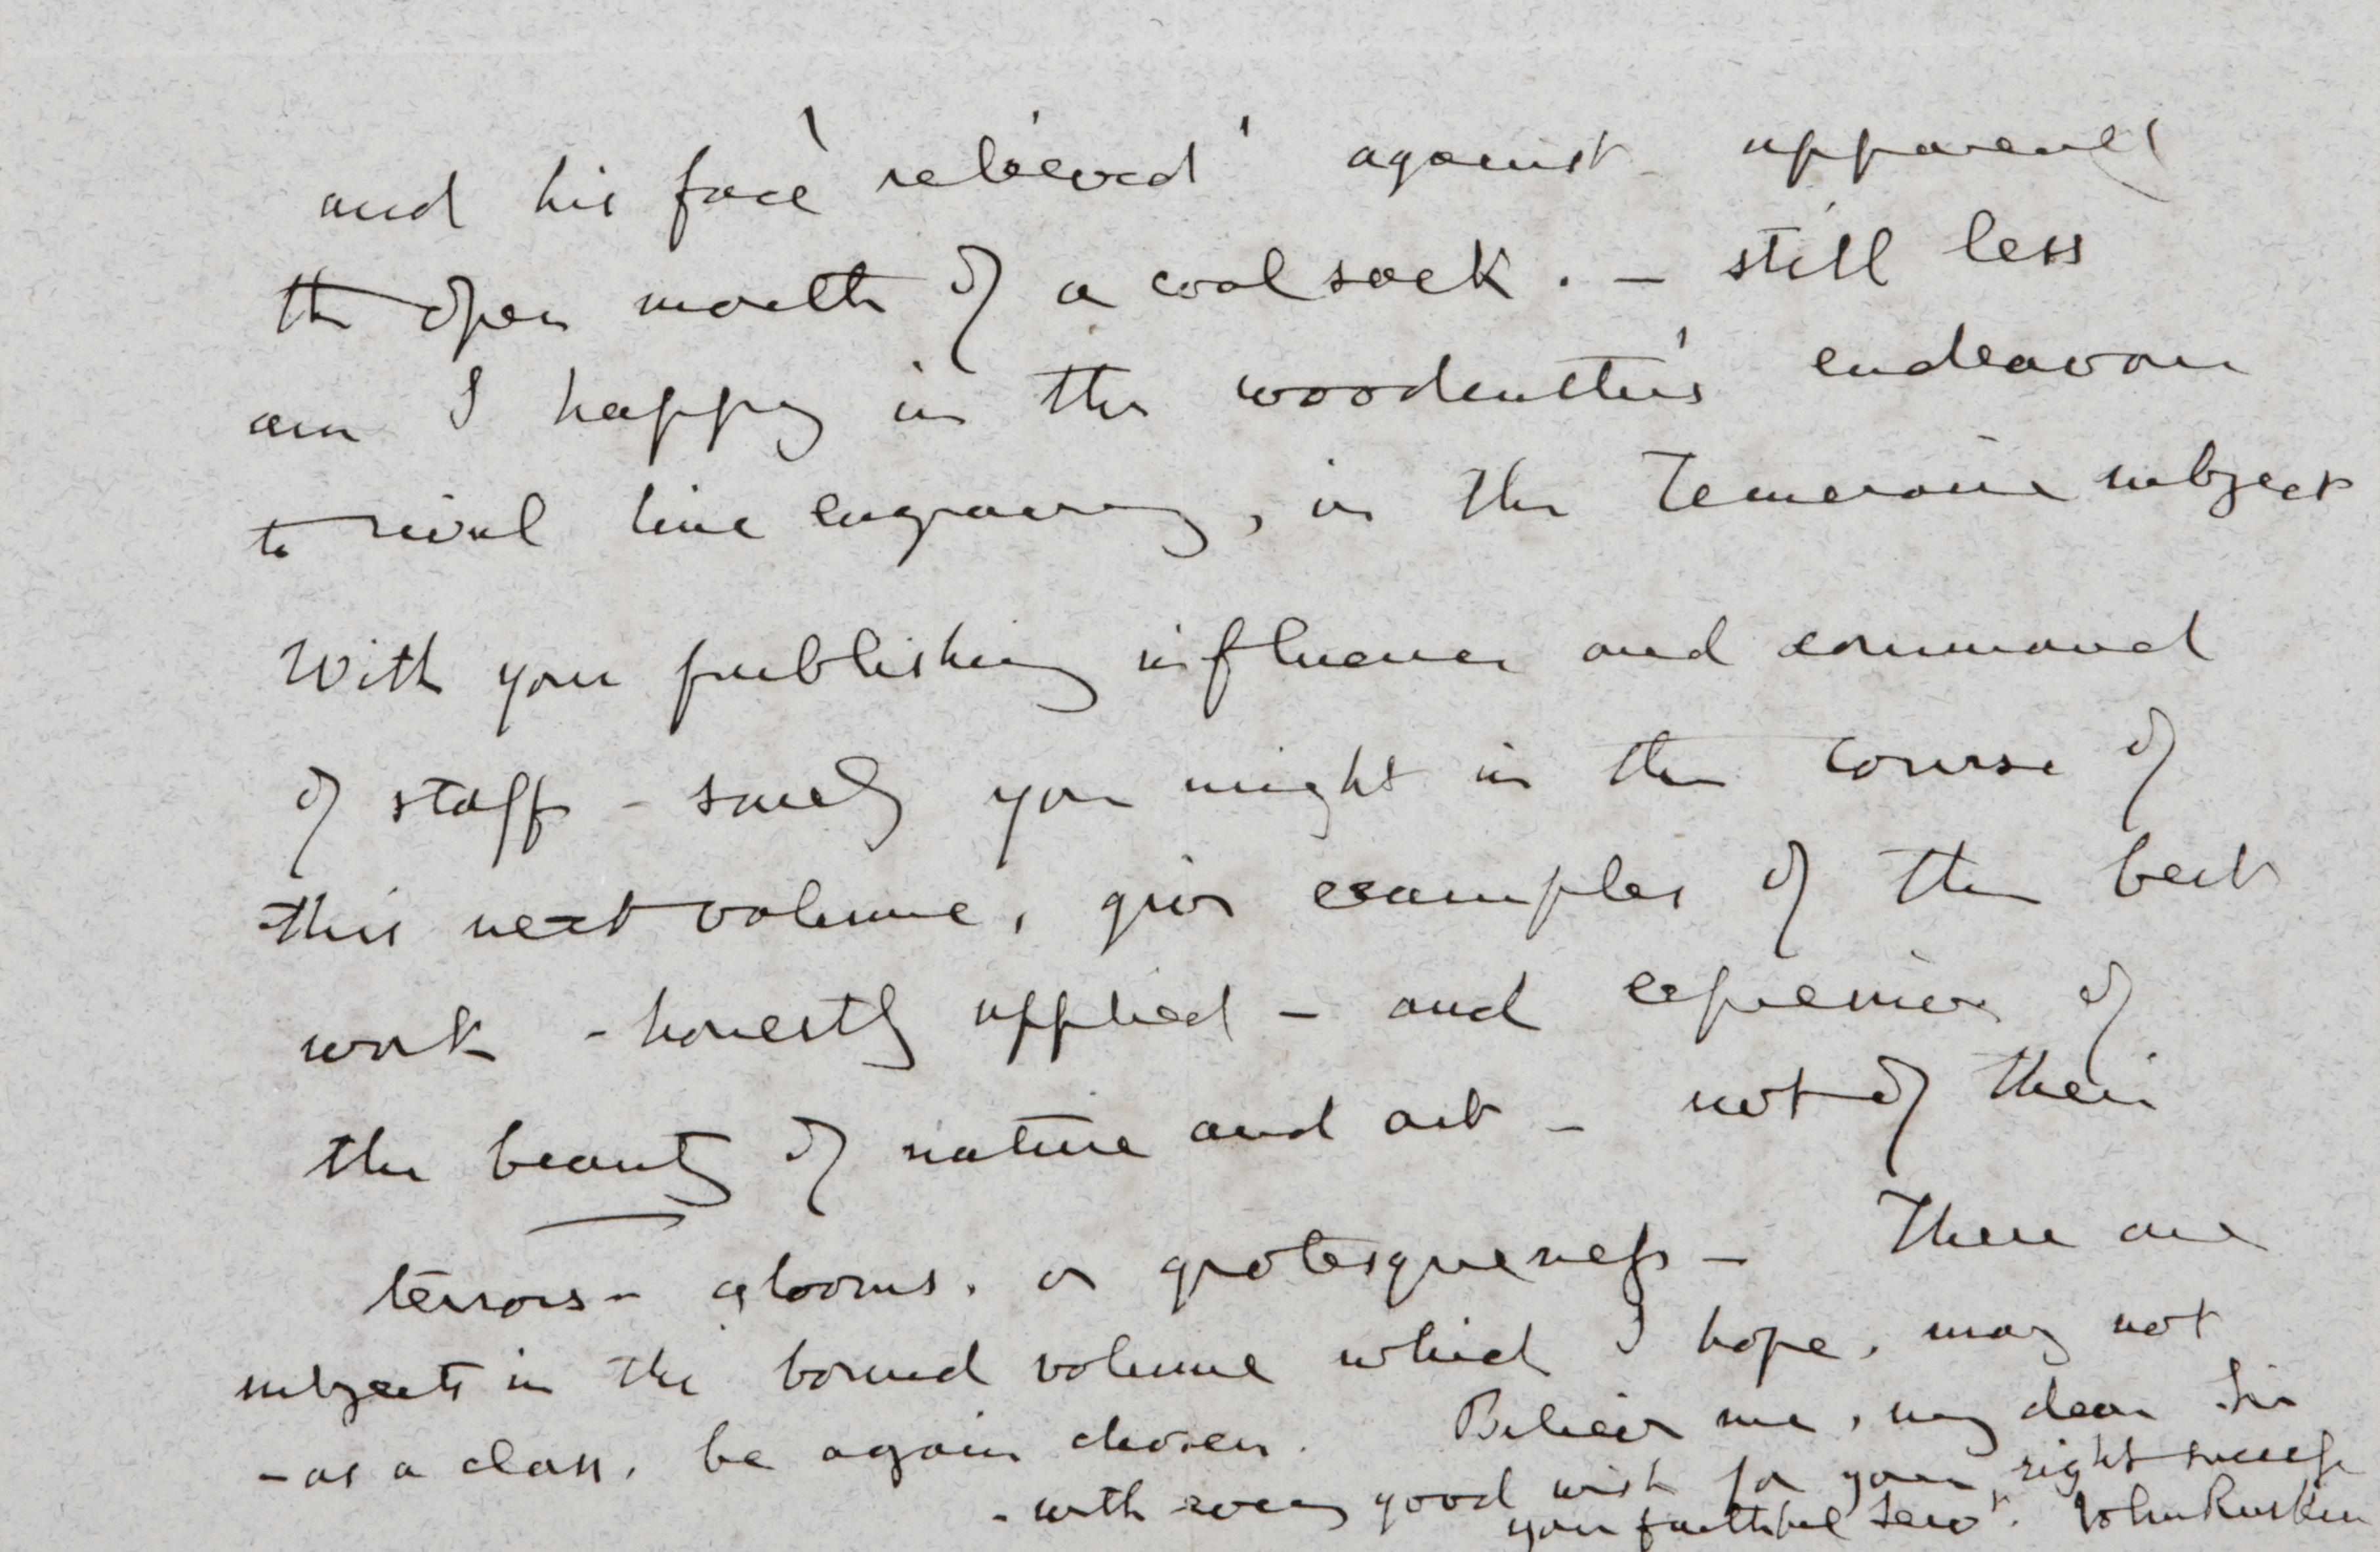 and his face 'relieved' against apparently
the open mouth of a coal sack. – still less
am I happy in the woodcutter's endeavour
to rival line engraving, in the Temeraire subject
With your publishing influence and command
of staff – surely you might in the course of
this next volume, give examples of the best
work – honestly applied – and expressive of
the beauty of nature and art – not of their
terrors – glooms, or grotesqueness – There are
subjects in the bound volume which I hope, may not
– as a class, be again chosen. Believe me, my dear Sir
– with every good wish for your right success
your faithful Servt. John Ruskin